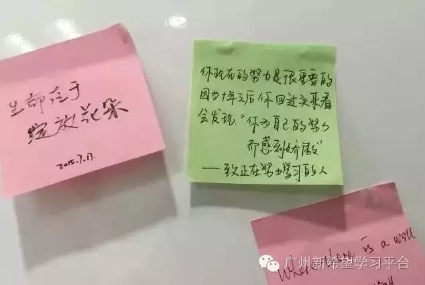 生命在于
绽放花朵
2015.7.17.
你现在的努力是很重要的
因为十年之后你回过头来看
会发现,"你为自己的努力
而感到骄傲"
——致正在努力学习的人
Where there is a will
广州新希望学习平台